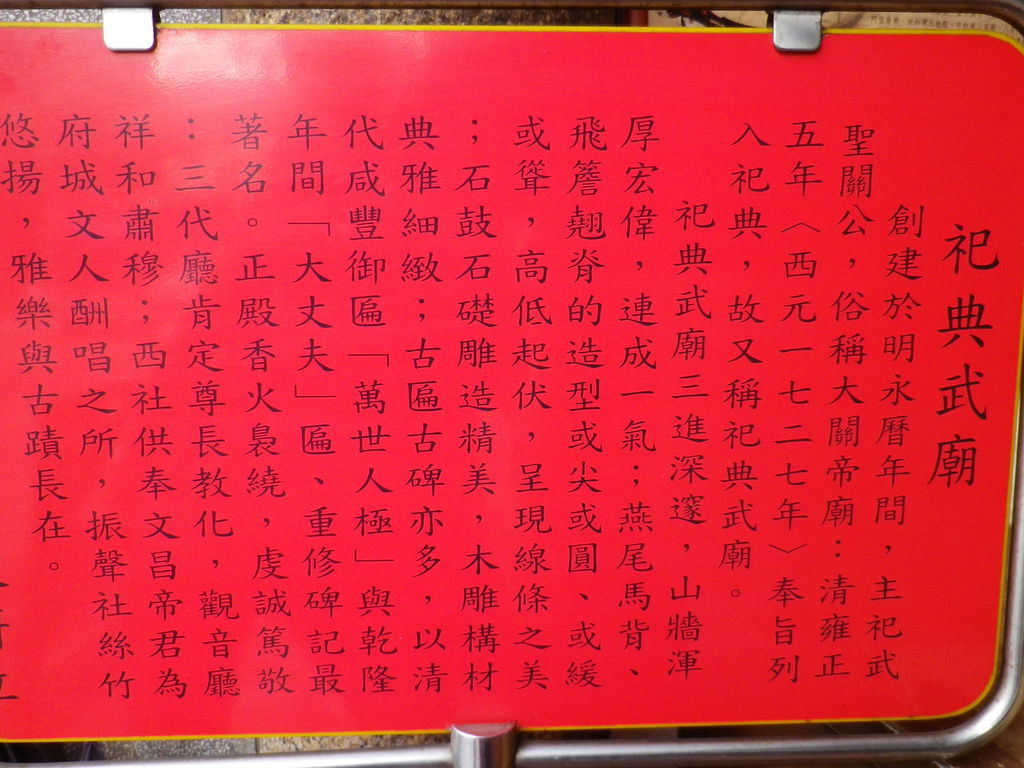 祀典武廟
創建於明永曆年間，主祀武
聖關公，俗稱大關帝廟：清雍正
五年〈西元一七二七年〉奉旨列
入祀典，故又稱祀典武廟。
祀典武廟三進深邃，山牆渾
厚宏偉，連成一氣；燕尾馬背、
飛簷翹脊的造型或尖或圓、或緩
或聳，高低起伏，呈現線條之美
；石鼓石礎雕造精美，木雕構材
典雅細緻；古匾古碑亦多，以清
代咸豐御匾「萬世人極」與乾隆
年間「大丈夫」匾、重修碑記最
著名。正殿香火裊繞，虔誠篤敬
：三代廳肯定尊長教化，觀音廳
祥和肅穆；西社供奉文昌帝君為
府城文人酬唱之所，振聲社絲竹
悠揚，雅樂與古蹟長在。